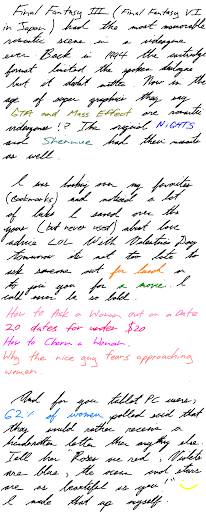 Final Fantasy III (Final Fantasy VI
in Japan) had the most memorable
romantic scene in a videogame
ever. Back in 1994 the cartridge
format limited the spoken dialogue
but it didnt matter. Now in the
age of super graphics they say
GTA and Mass Effect are romantic
videogames!? The original NiGHTS
and Shenmue had their moments
as well.
I was looking over my favorites
(bookmarks) and noticed a lot
of links I saved over the
years (but never used) about love
advice LOL With Valentines Day
tomorrow its not too late to
ask someone out for lunch or
to join you for a movie. I
call women to so bold.
How to Ask a Woman out on a date
20 dates for under $20
How to Charm a Woman
Why the nice guy fears approaching
women.
And for you tablet PC users,
62% of women polled said that
they would rather receive a
handwritten letter than anything else.
Tell her "Roses are red, Violets
are blue, the ocean and stars
are as beautiful as you!"
I made that up myself.